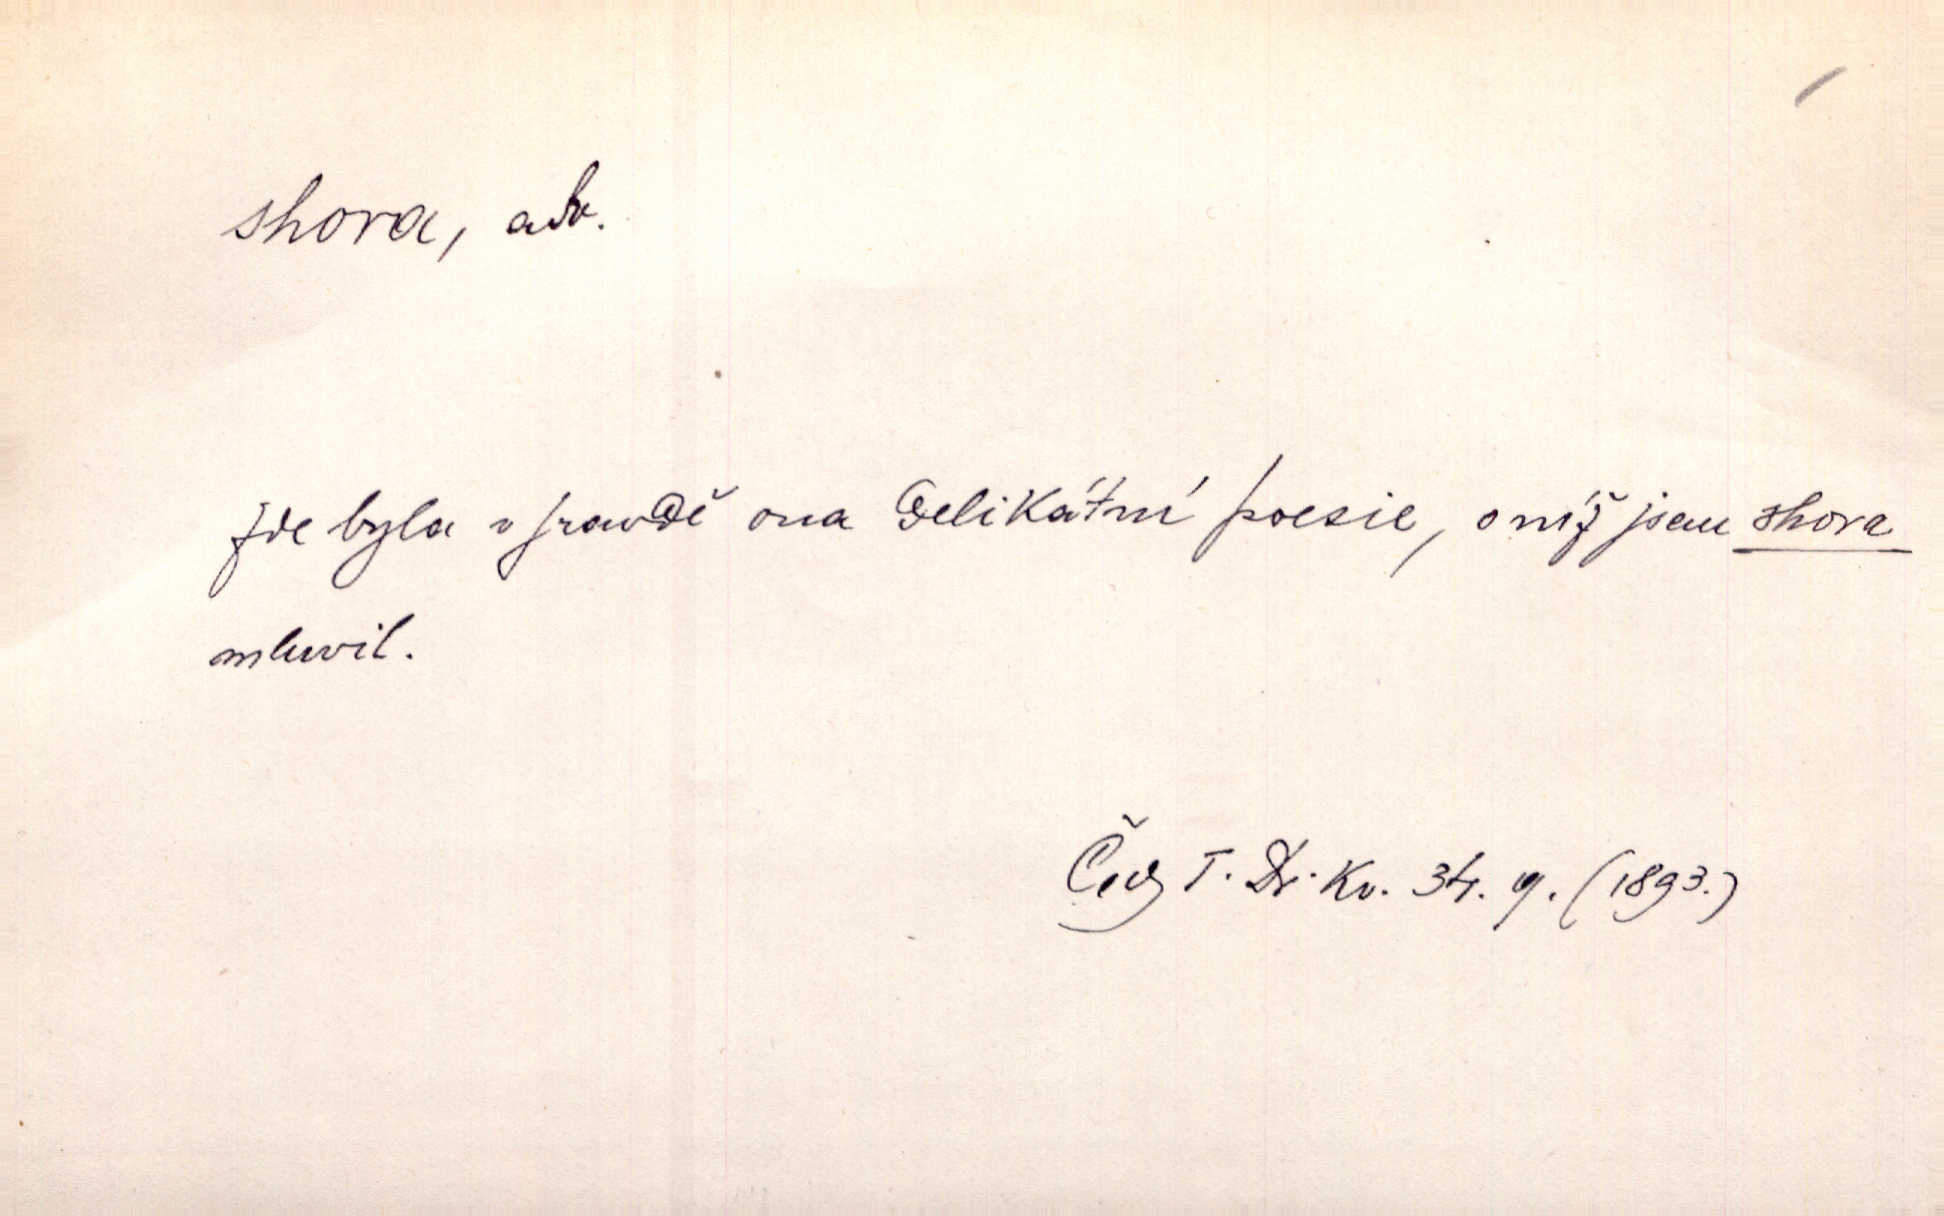 shora, adv.
zde byla v pravdě ona delikátní poesie, o níž jsem shora
mluvil.
Čech T. Dr. Kv. 34. 9. (1893.)